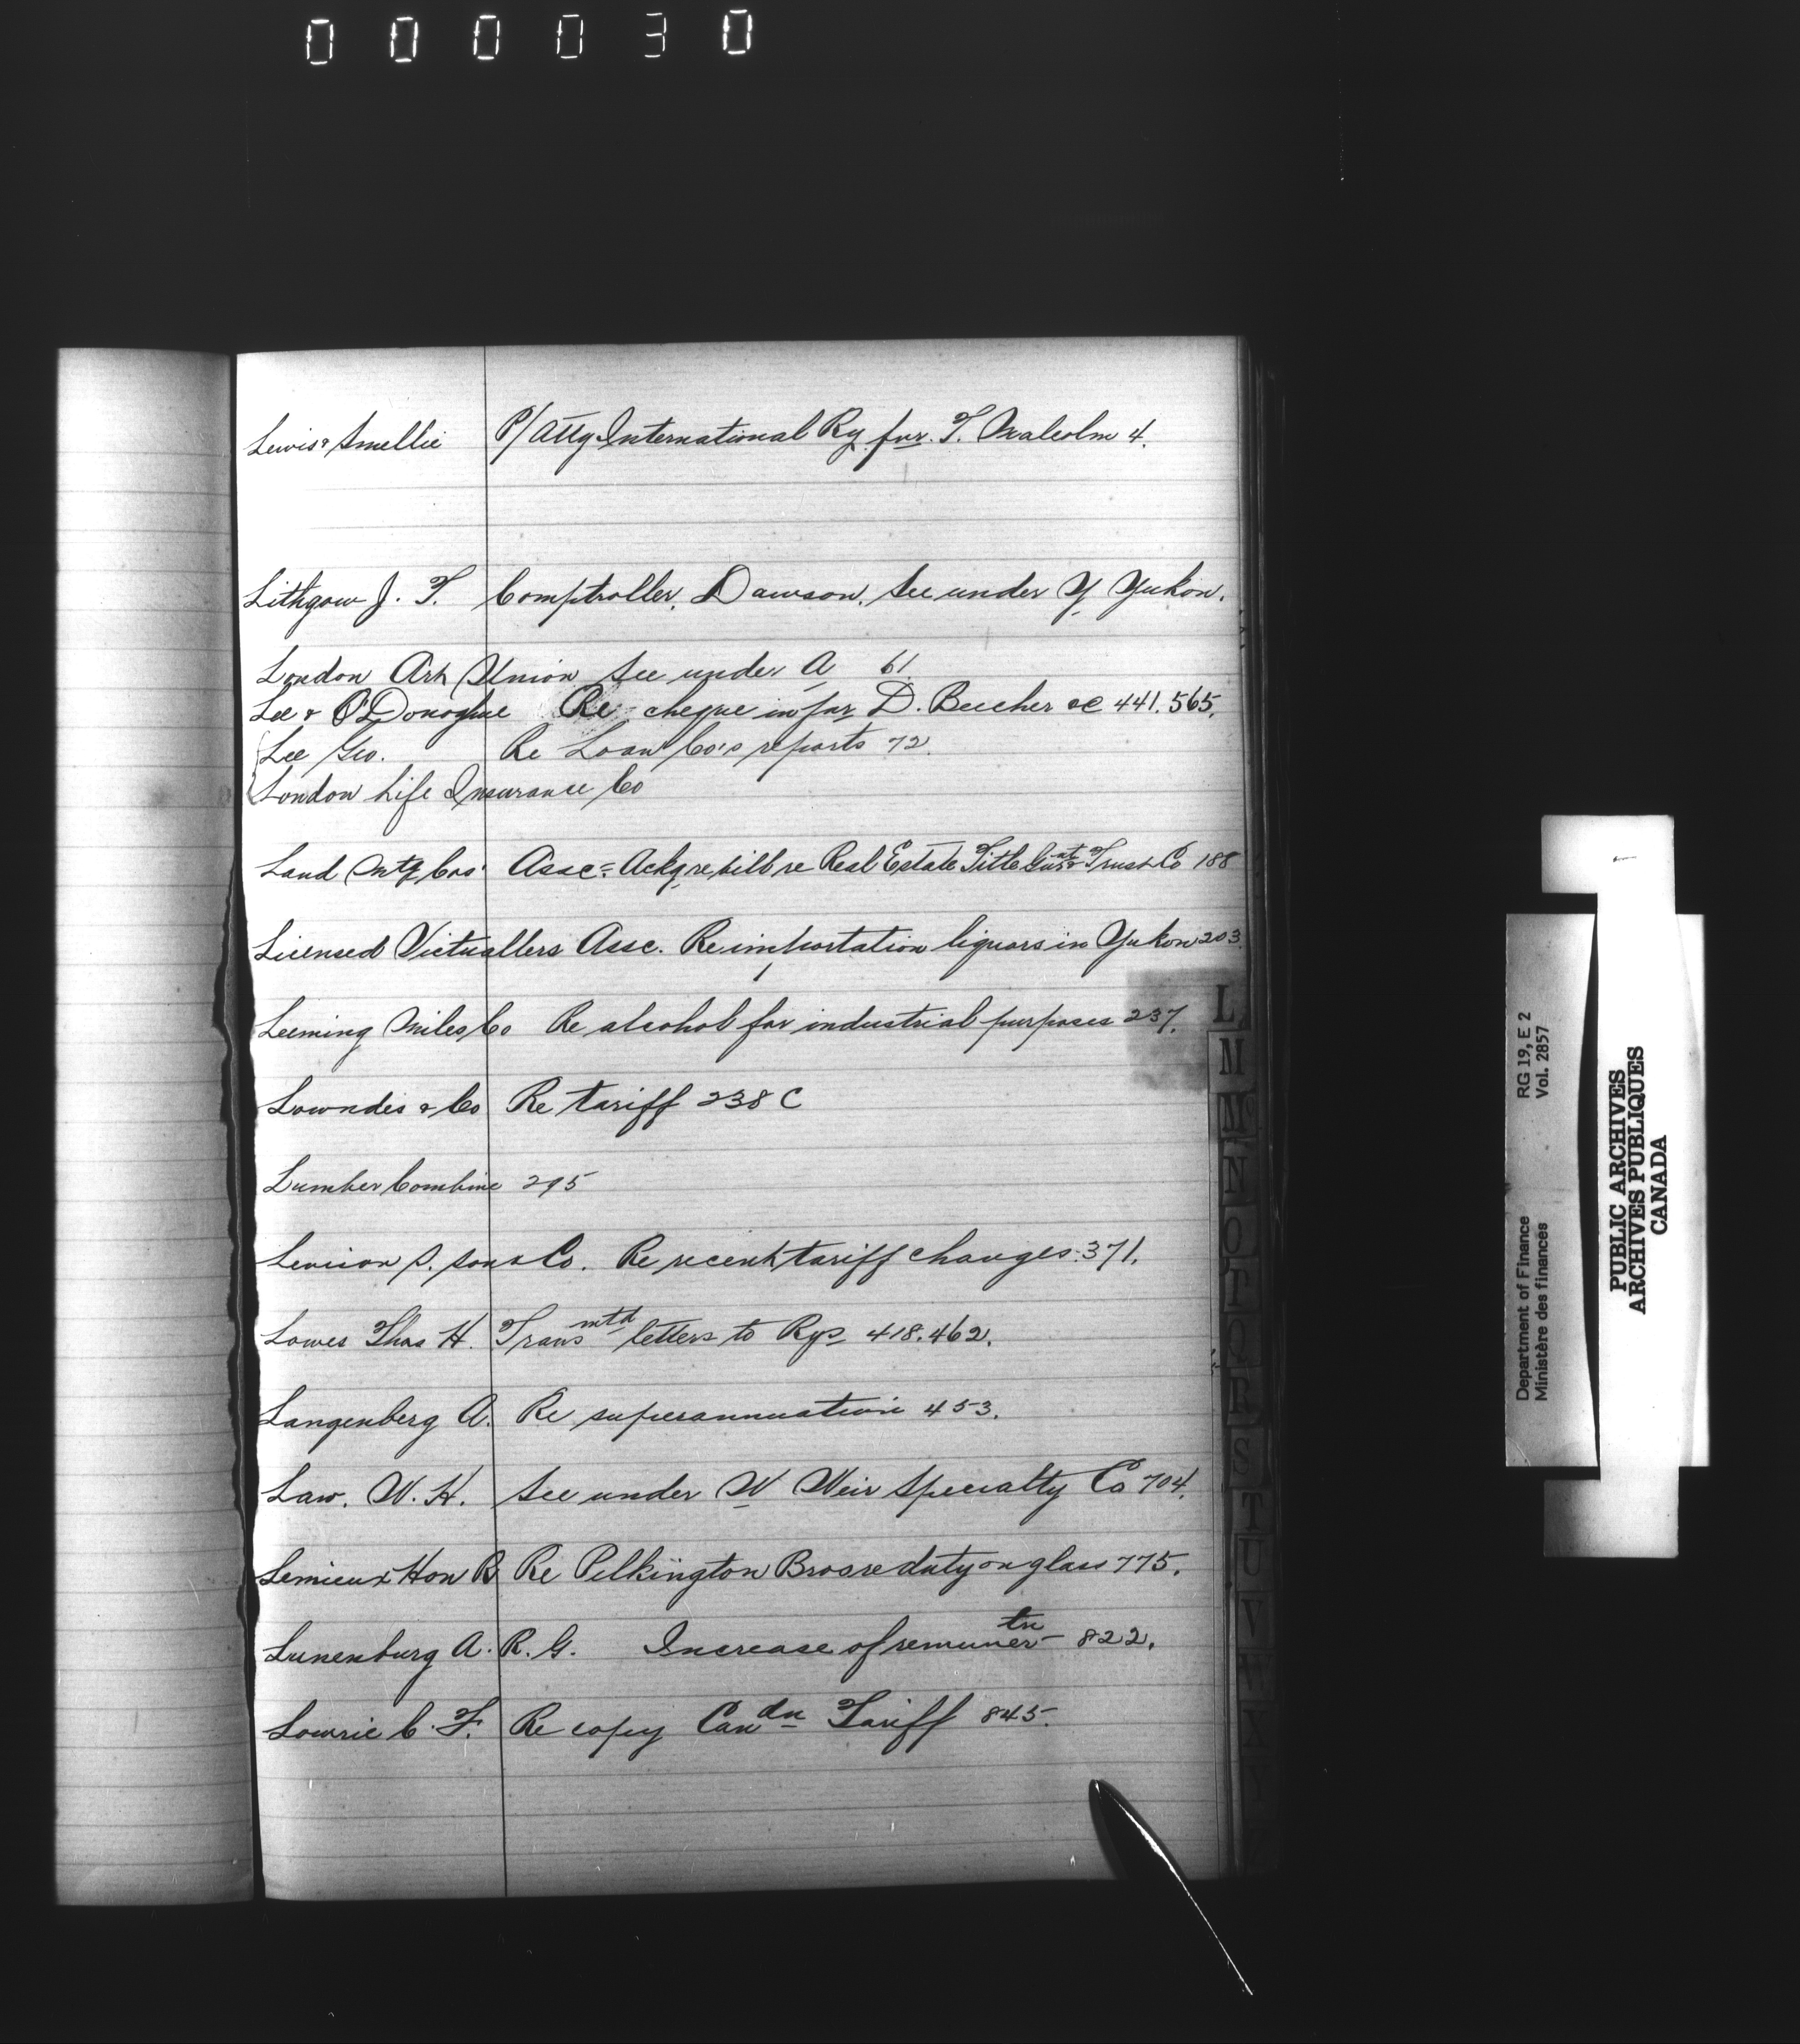 000030
Lewis & Smellie P/Atty International Ry fvr. T. Malcolm 4.
Lithgow J. T. Comptroller, Dawson. See under Y Yukon.
London Art Union See under A 61
Lee & O'Donoghue Re cheque in fvr D. Beecher 441. 565.
Lee Geo. Re Loan Co's reports 72.
London Life Insurance Co
Land Mtg Cos' Assc= Ackg re bill re Real Estate Title Guarat & Trust Co 188
Licensed Victuallers Assc. Re importation liquors in Yukon 203
Leeming Miles Co Re alcohol for industrial purposes 237.
Lowndes & Co Re tariff 238 C
Lumber Combine 295
Levison S. Son & Co. Re recent tariff changes. 371.
Lowes Thos H. Transmtd letters to Rys 418. 462.
Langenberg A. Re superannuation 453.
Law. W. H. See under W Weir Specialty Co 704.
Lemieux Hon R Re Pilkington Bros re duty on glass 775.
Lunenburg A. R. G. Increase of remunertn 822.
Lowrie C. F. Re copy Candn Tariff 845.
L
M
Mc
N
O
P
Q
R
S
T
U
V
W
X
Y
Z
Department of Finance RG 19, E 2
Ministère des finances Vol. 2857
PUBLIC ARCHIVES
ARCHIVES PUBLIQUES
CANADA